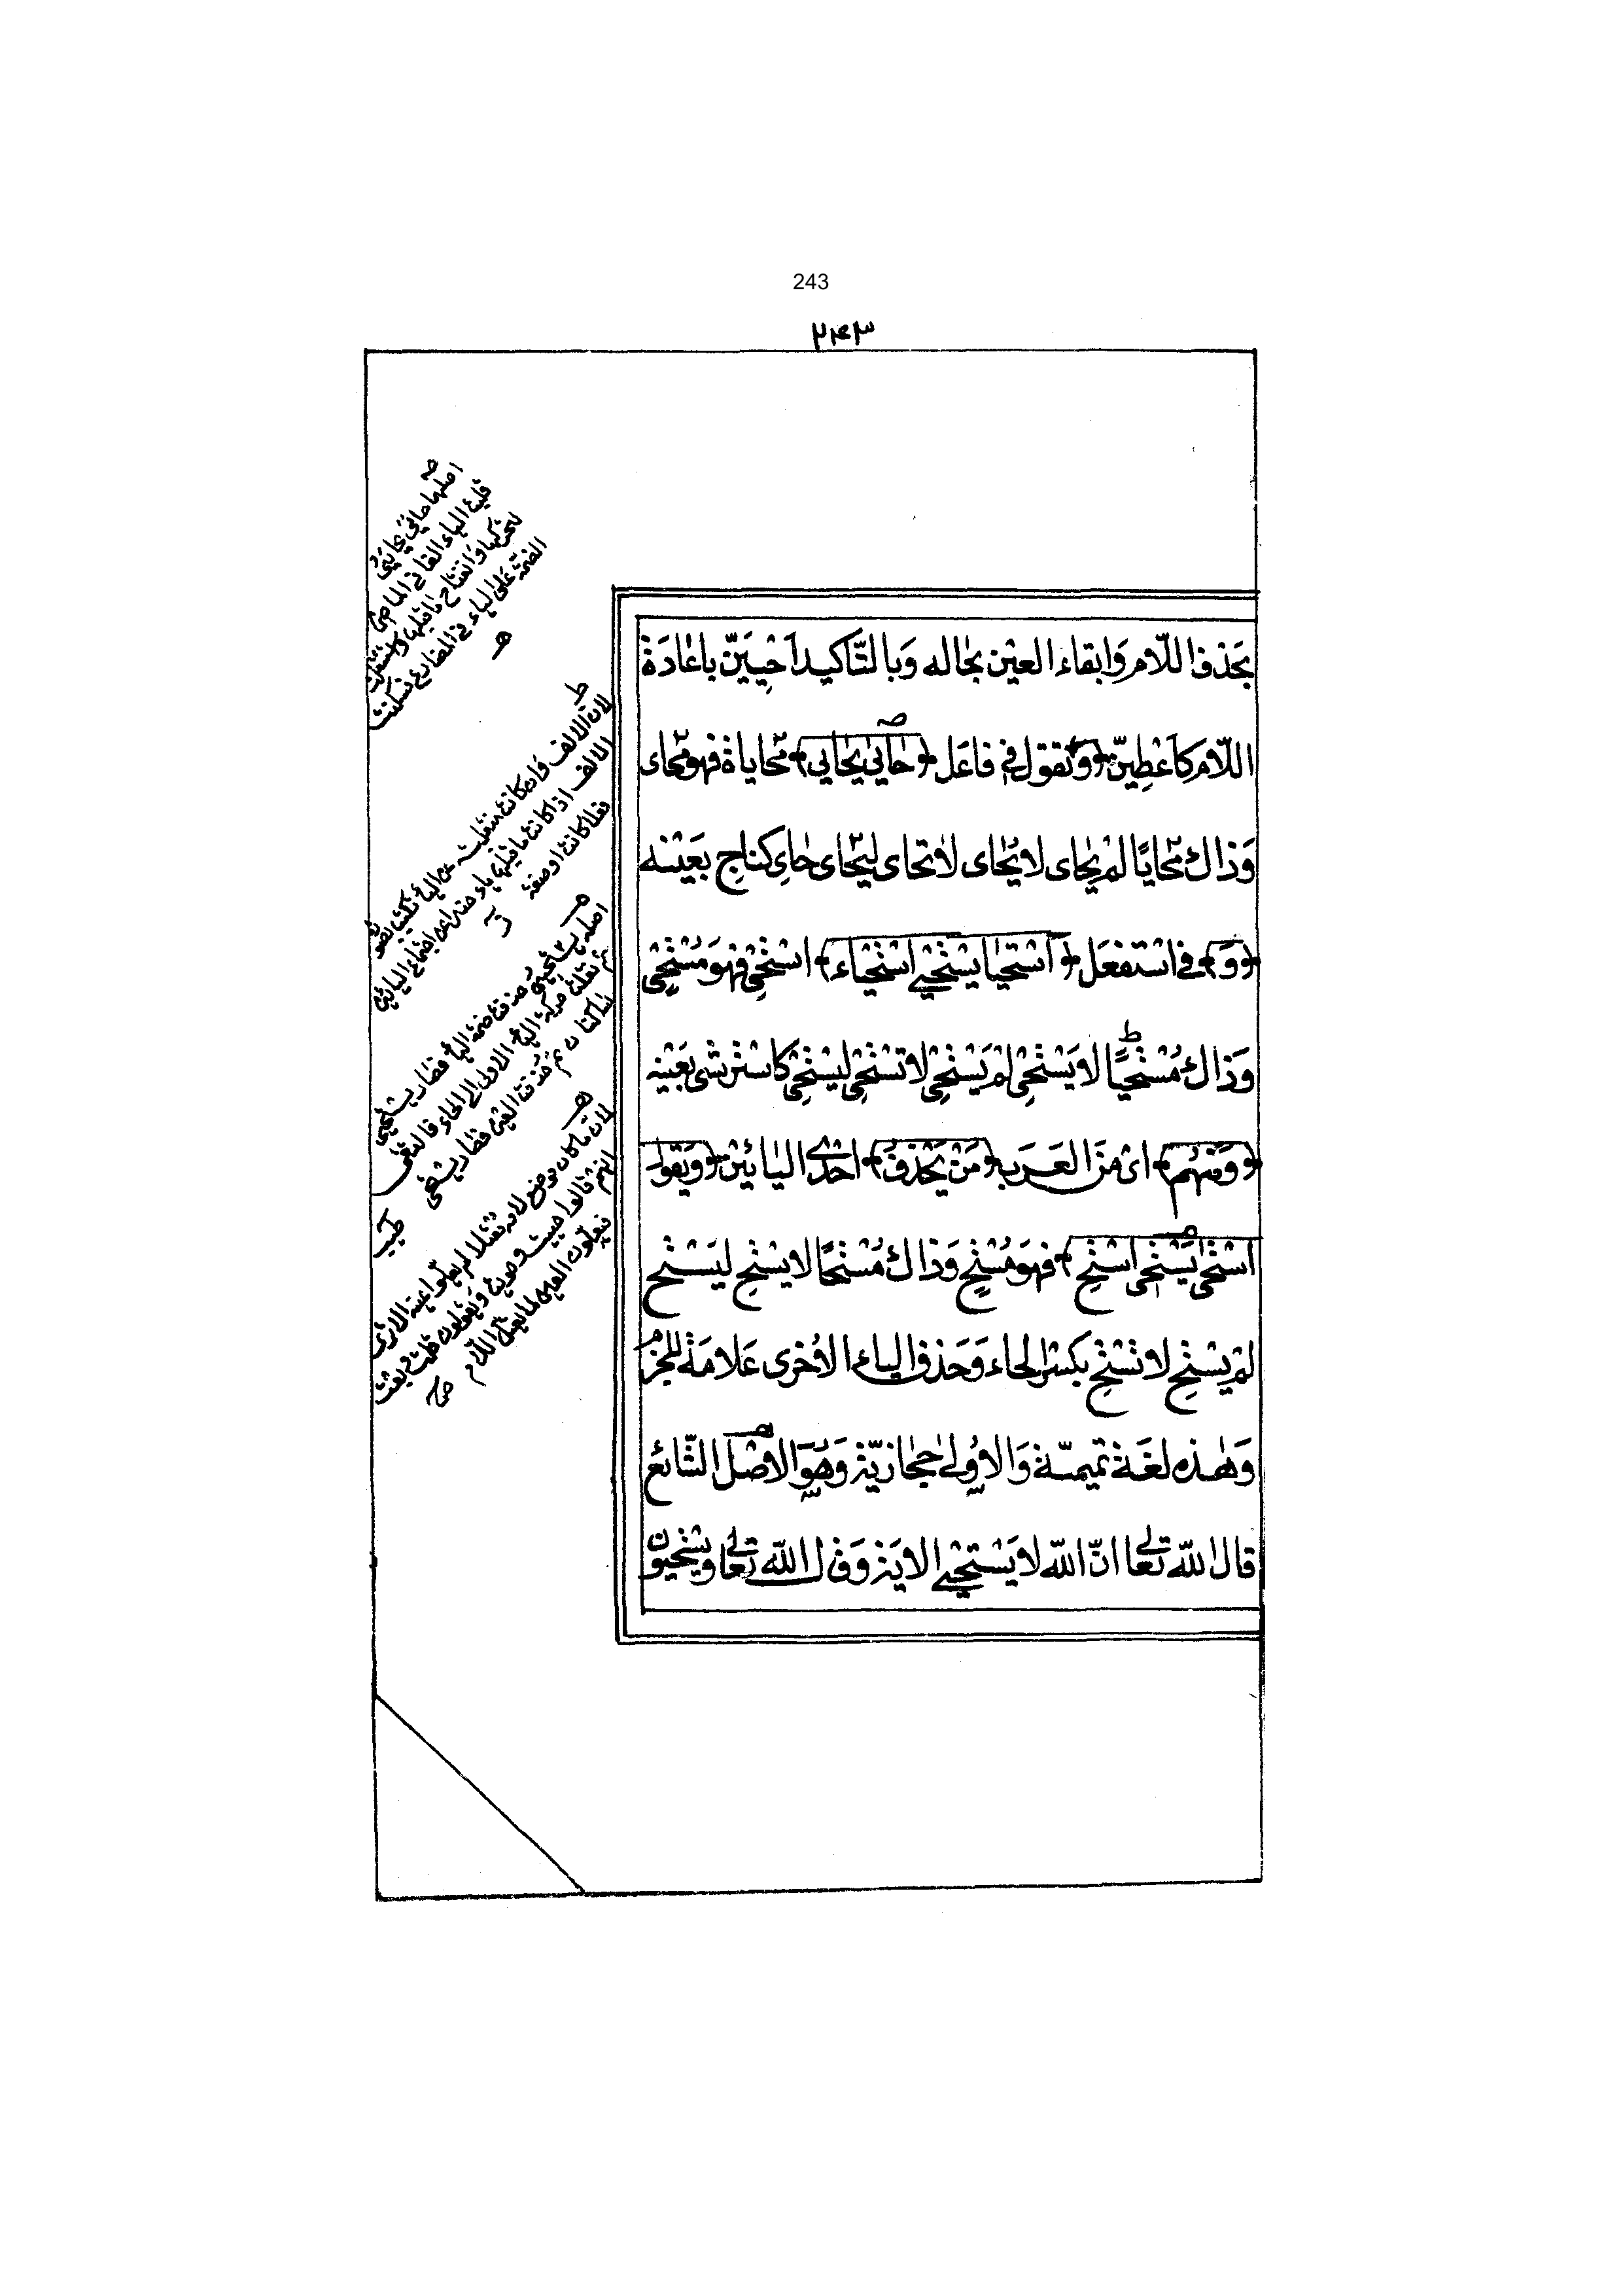 243
٢٤٣
بحَذف اللّام وَابقاء العيْن بحاله وَبالتّاكيد اَحْيِيَنّ باعادَة
اللّام كاَعْطِيَنّ ﴿وَتقول﴾ في فاعَل ﴿حايى يُحايي﴾ مُحاياة فهو مُحاى
وَذاك مُحايًا لمْ يحاى لا يُحاى لا تحاى ليحاى حاىِ كناجِ بعَيْنه
﴿وَ﴾ في اسْتفعَل ﴿اسْتحيا يسْتحْيي اسْتحْياء﴾ اسْتحْىِ فهوَ مُسْتحْىٍ
وَذاك مُسْتحْيًا لا يَسْتحْىِ لمْ يَسْتحْىِ لا تسْتحْىِ ليسْتحْىِ كاسْترشى بعَيْنه
﴿وَمنهُم﴾ اىْ منَ العَرَب ﴿مَنْ يَحْذفُ﴾ احْدى اليائيْن ﴿وَيقول
اسْتحٰى يَسْتحى اسْتحِ﴾ فهوَ مُسْتحٍ وَذاك مُسْتحًا لا يسْتحِ ليَسْتحِ
لمْ يسْتحِ لا تسْتحِ بكسْر الحاء وَحَذف الياء الاُخرى عَلامَة للجزم
وَهٰذه لغَة تميميّة وَالاُولى حجازيّة وَهُوَ الاصْل الشّائع
قال اللّه تعالى انّ اللّه لا يَسْتحْيي الاية وَقال اللّه تعالى وَيسْتحْيون
اصلهما حايَىَ يحايِىُ
قلبت الياء الفا في الماضى
لتحركها وانفتاح ماقبلها واستثقلت
الضمّة على الياء في المضارع فسكنت
لان الالف وان كانت منقلبة عن الياء تكتب بصورة
الالف اذا كانت ماقبلها ياء حذرا عن اجتماع اليائين
فعلا كانت او صفة
اصله يستحيى حذفت ضمة الياء فصار يستحيى
ثم نقلت حركة الياء الاولى الى الحاء فالتقى
ساكنان فحذفت العين فصار يستحى
لان ما كان موضع لامه معتلا لم يعلّوا عينه الا ترى
انهم قالوا حييت وحويت ويقولون قلت وبعت
فيعلّون العين لما لم يعتلّ اللام